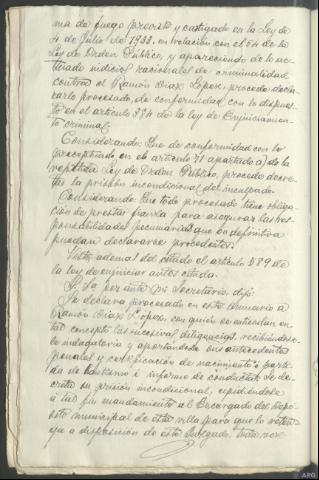 ma de fuego previsto y castigado en la Ley de
4 de Julio de 1933. en relación con el 54 de la
Ley de Orden Público, y apareciendo de lo ac-
tuado indicios racionales de criminalidad
contra el Ramón Diaz Lopez; procede decla-
rarle procesado, de conformidad con lo dispues-
to en el artículo 384 de la ley de Enjuiciamien-
to criminal.
Considerando: Que de conformidad con lo
preceptuado en el artículo 71 apartado a) de la
repetida Ley de Orden Público, procede decre-
tar la prisión incondicional del inculpado.
Considerando: Que todo procesado tiene obliga-
ción de prestar fianza para asegurar las res-
ponsabilidades pecuniarias que en definitiva
puedan declararse procedentes.
Visto además del citado el artículo 589 de
la ley de enjuiciar antes citada.
S.Sª por ante mi Secretario dijo:
Se declara procesado en este sumario a
Ramón Diaz Lopez, con quien se entiendan en
tal concepto las sucesivas diligencias, recibiéndose-
le indagatoria y aportándose sus antecedentes
penales y certificación de nacimiento o parti-
da de bautismo é informe de conducta. Se de-
creta su prisión incondicional, expidiéndose
a tal fin mandamiento al Encargado del Depó-
sito municipal de esta villa para que lo reten-
ga a disposición de este Juzgado,
ARG